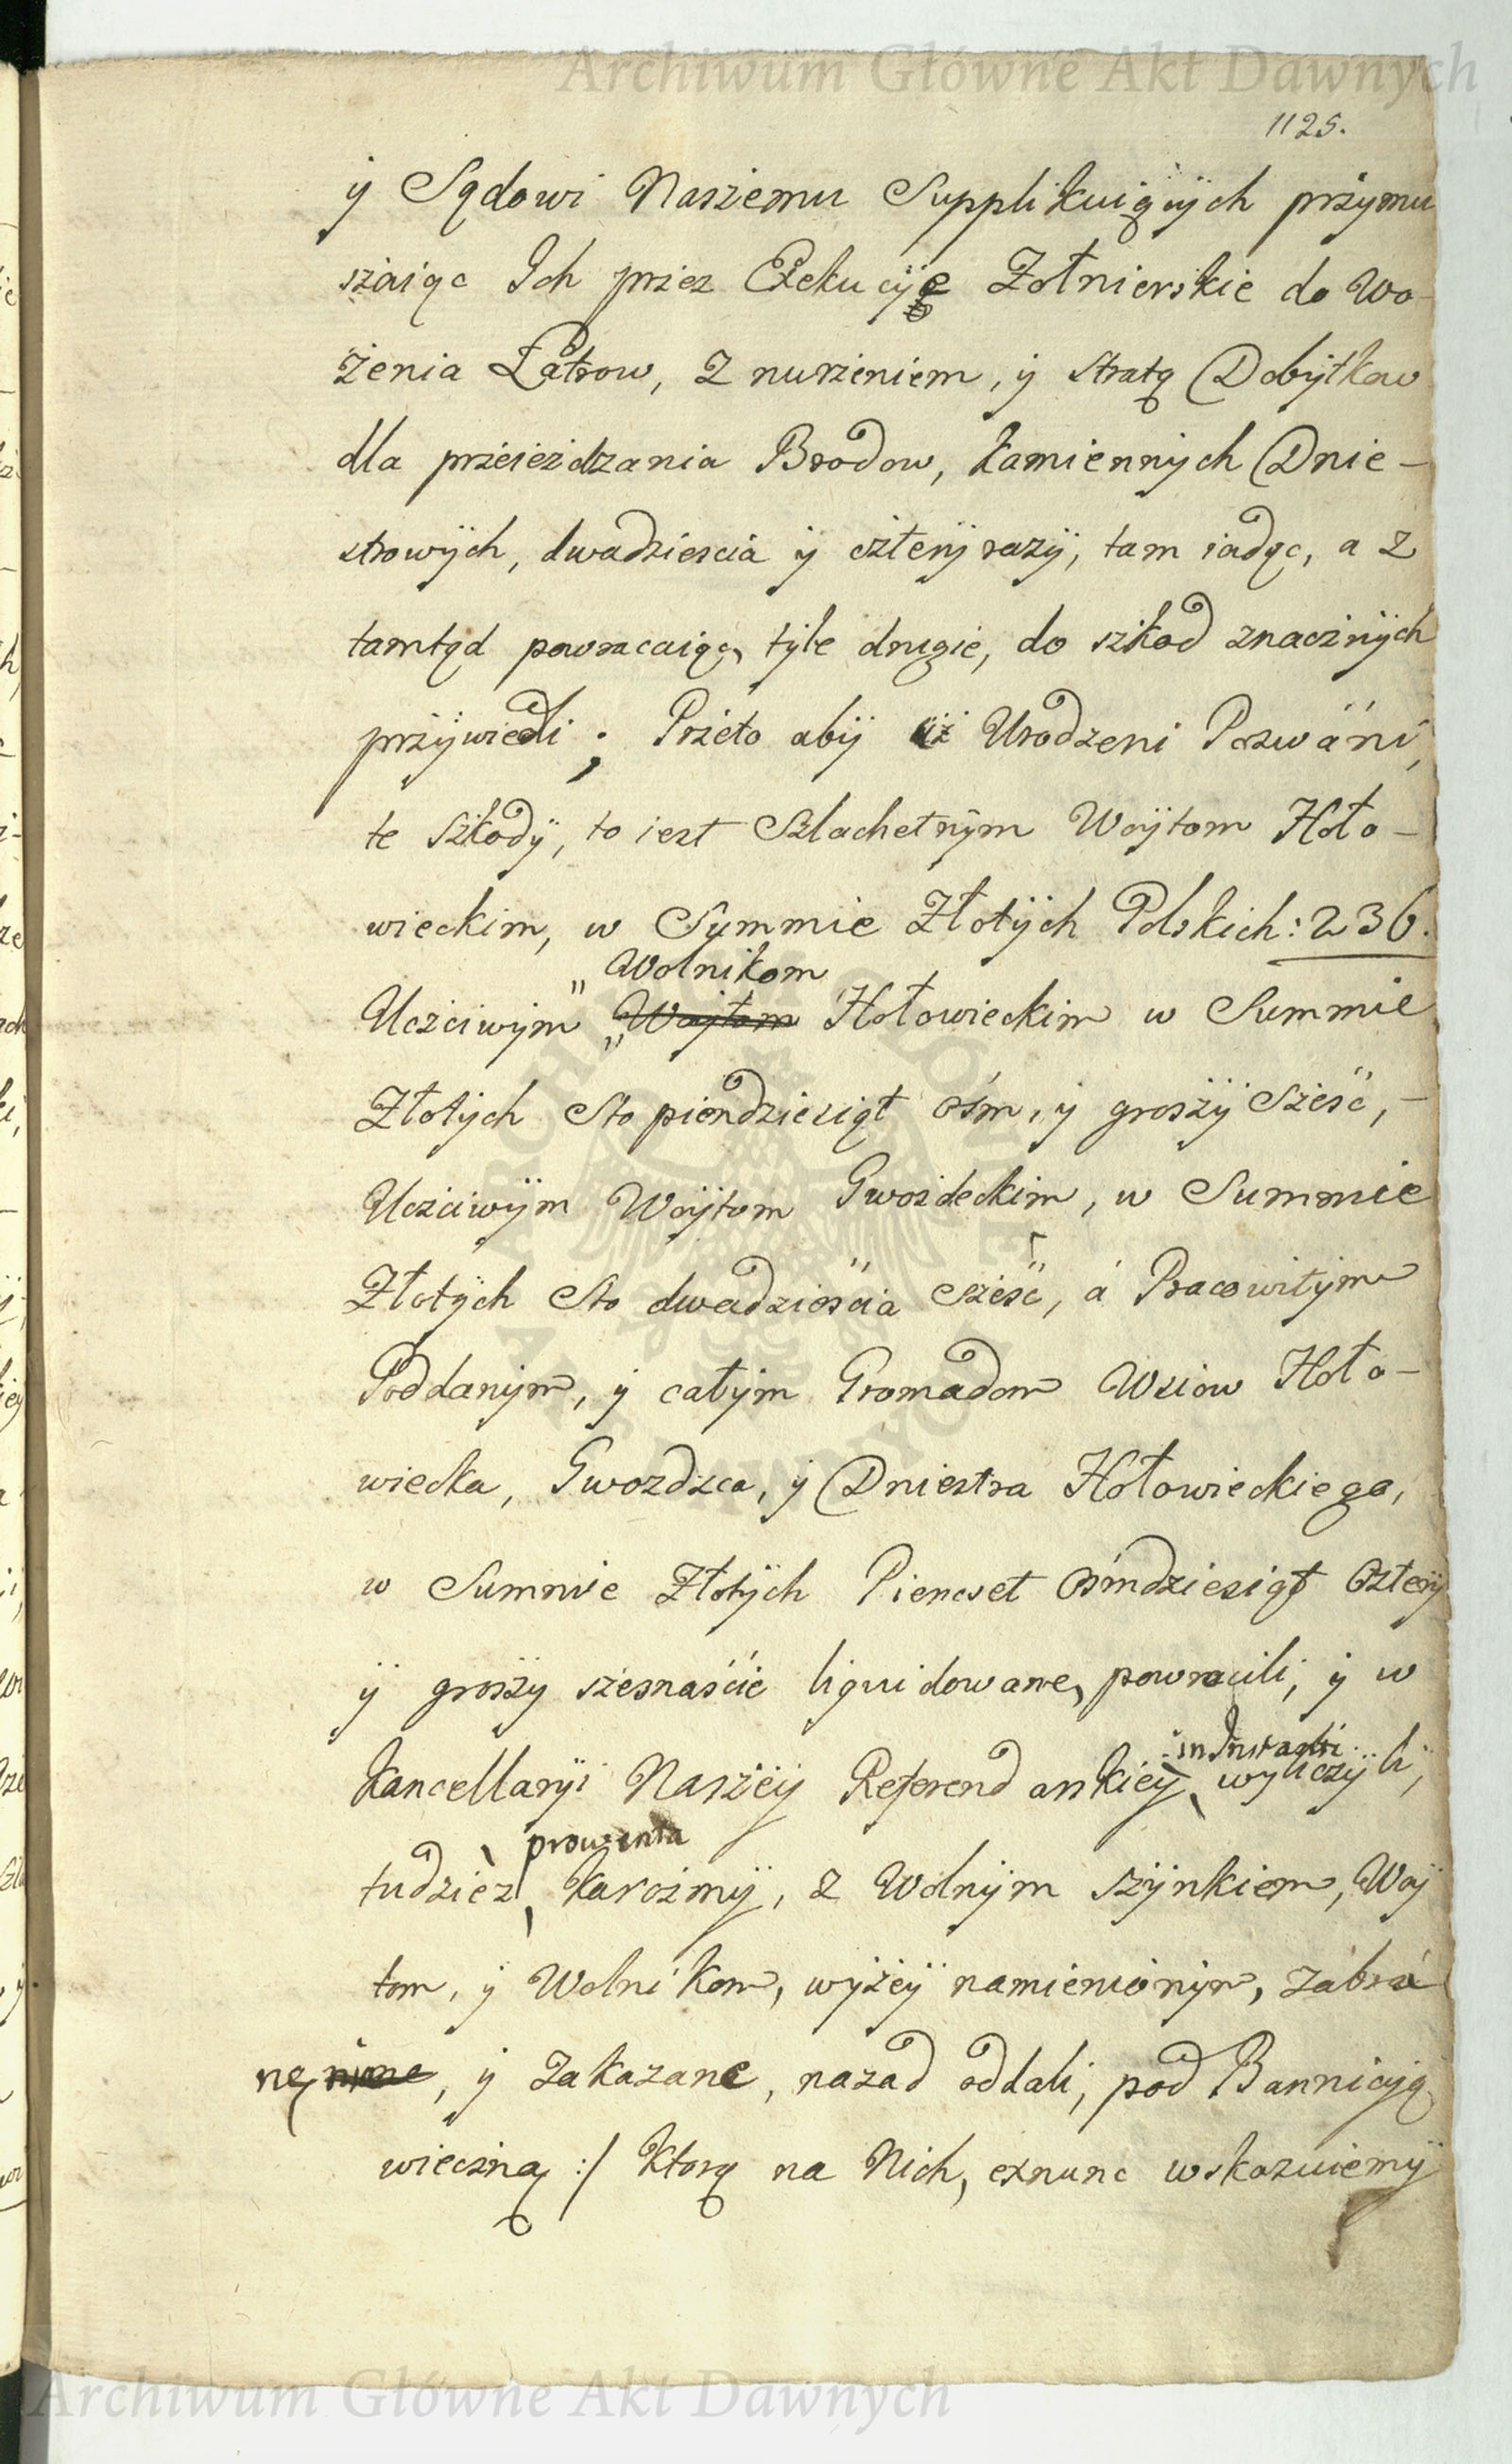 Archiwum Główne Akt Dawnych
1125.
ÿ Sądowi Naszemu Supplikuiących przymu
szaiąc Ich przez Exekucÿę Zołnierskie do Wo-
żenia Łatrow, z nurzeniem, ÿ stratą Dobÿtkow
dla przeieżdzania Brodow, kamiennÿch Dnie-
strowÿch, dwadziescia ÿ czterÿ razÿ, tam iadąc, a z
tamtąd powracaiąc, tÿle drugie, do szkod znacznÿch
przÿwiedli; Przeto abÿ iż Urodzeni Pozwáni,
te szkodÿ, to iest Szlachetnÿm Woÿtom Hoło-
wieckim, w Summie Złotÿch Polskich: 236.
„ Wolnikom
Uczciwÿm „Woÿtom Hołowieckim w Summie
Złotÿch sto piendziesiąt ośm, ÿ groszÿ sześć, -
Uczciwÿm Woÿtom Gwozdeckim, w Summie
Złotÿch sto dwadzieścia sześć, á Pracowitÿm
Poddanÿm, ÿ całÿm Gromadom Wsiow Hoło-
wiecka, Gwozdzca, ÿ Dniestra Hołowieckiego,
w Summie Złotÿch Piencset ośmdziesiąt czterÿ
ÿ groszÿ szesnaście liquidowane, powrocili, ÿ w
in Instanti
Kancellarÿi Naszeÿ Referendarskieÿ, wÿliczÿli,
prowenta
tudzież, Karczmÿ, z Wolnÿm szÿnkiem, Woÿ
tom, ÿ Wolnikom, wÿżeÿ namienionÿm, zábrá
nę nione, ÿ zakazane, nazad oddali, pod Bannicÿą
wieczną :/ Ktorą na Nich, exnunc wskazuiemÿ
Archiwum Główne Akt Dawnych